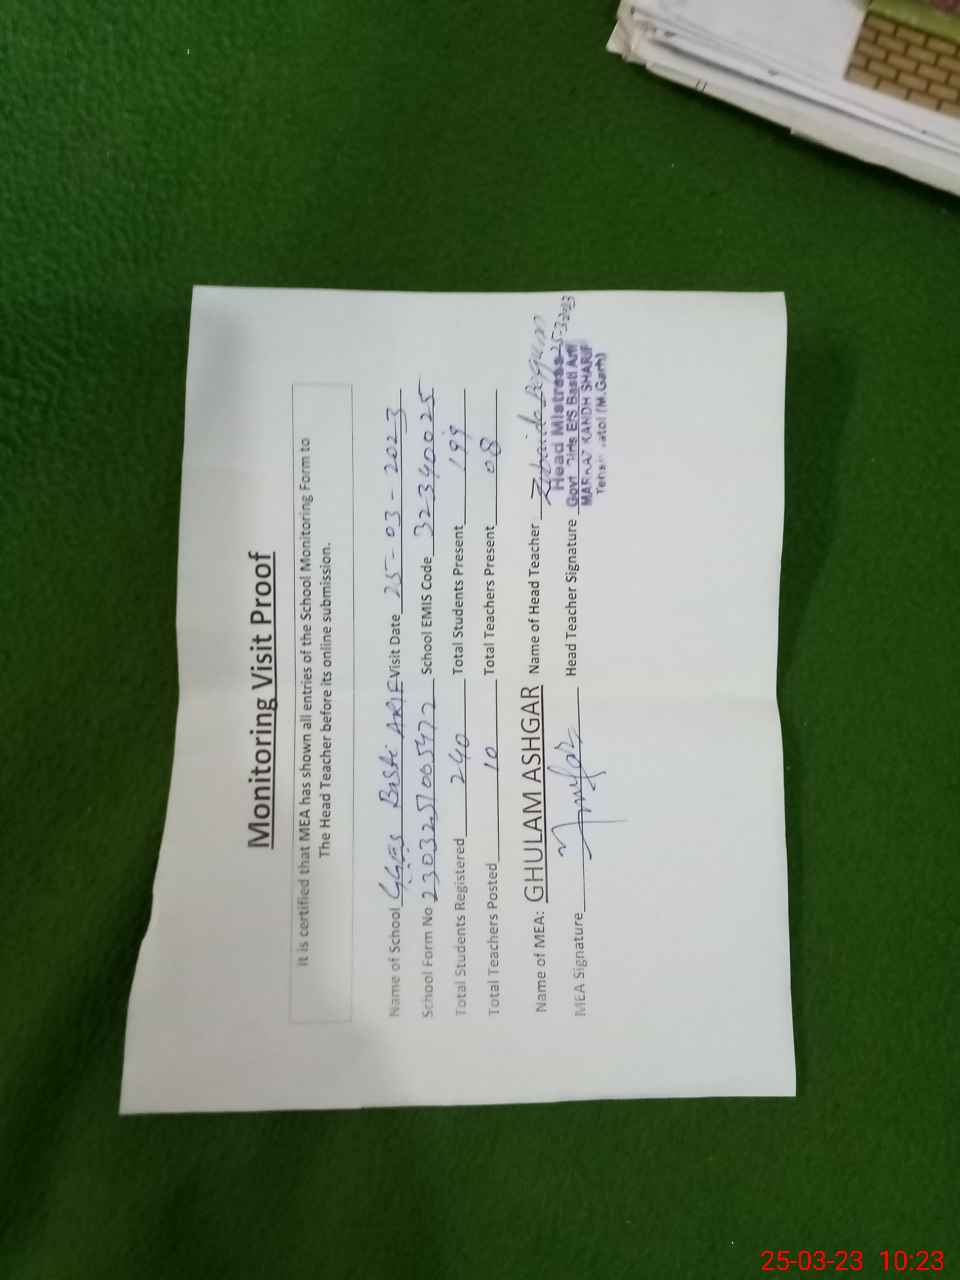 Monitoring Visit Proof
It is certified that MEA has shown all entries of the School Monitoring Form to
The Head Teacher before its online submission.
Name of School GGES Basti ARIF Visit Date 25-03-2023
School Form No 2303251005472 School EMIS Code 32340025
Total Students Registered 240 Total Students Present 199
Total Teachers Posted 10 Total Teachers Present 08
Name of MEA: GHULAM ASHGAR Name of Head Teacher Zubaida Begum
MEA Signature Head Teacher Signature
Head Mistress 25-3-2023
Govt Girls E/S Basti Arif
SHARIF
(M.Garh)
25-03-23 10:23